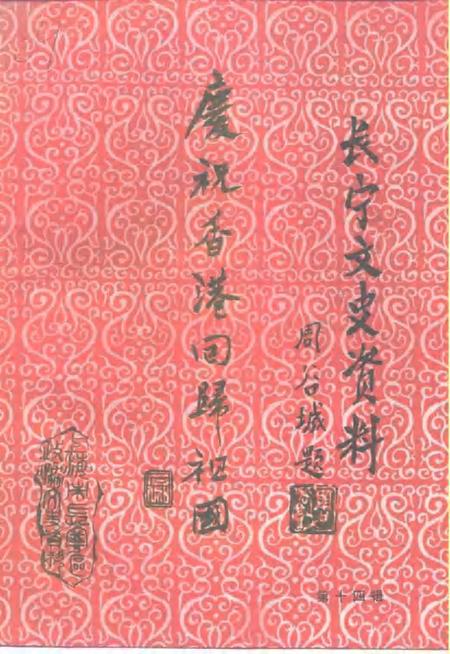 长宁文史资料
周谷城题
慶祝香港回歸祖國
第十四辑